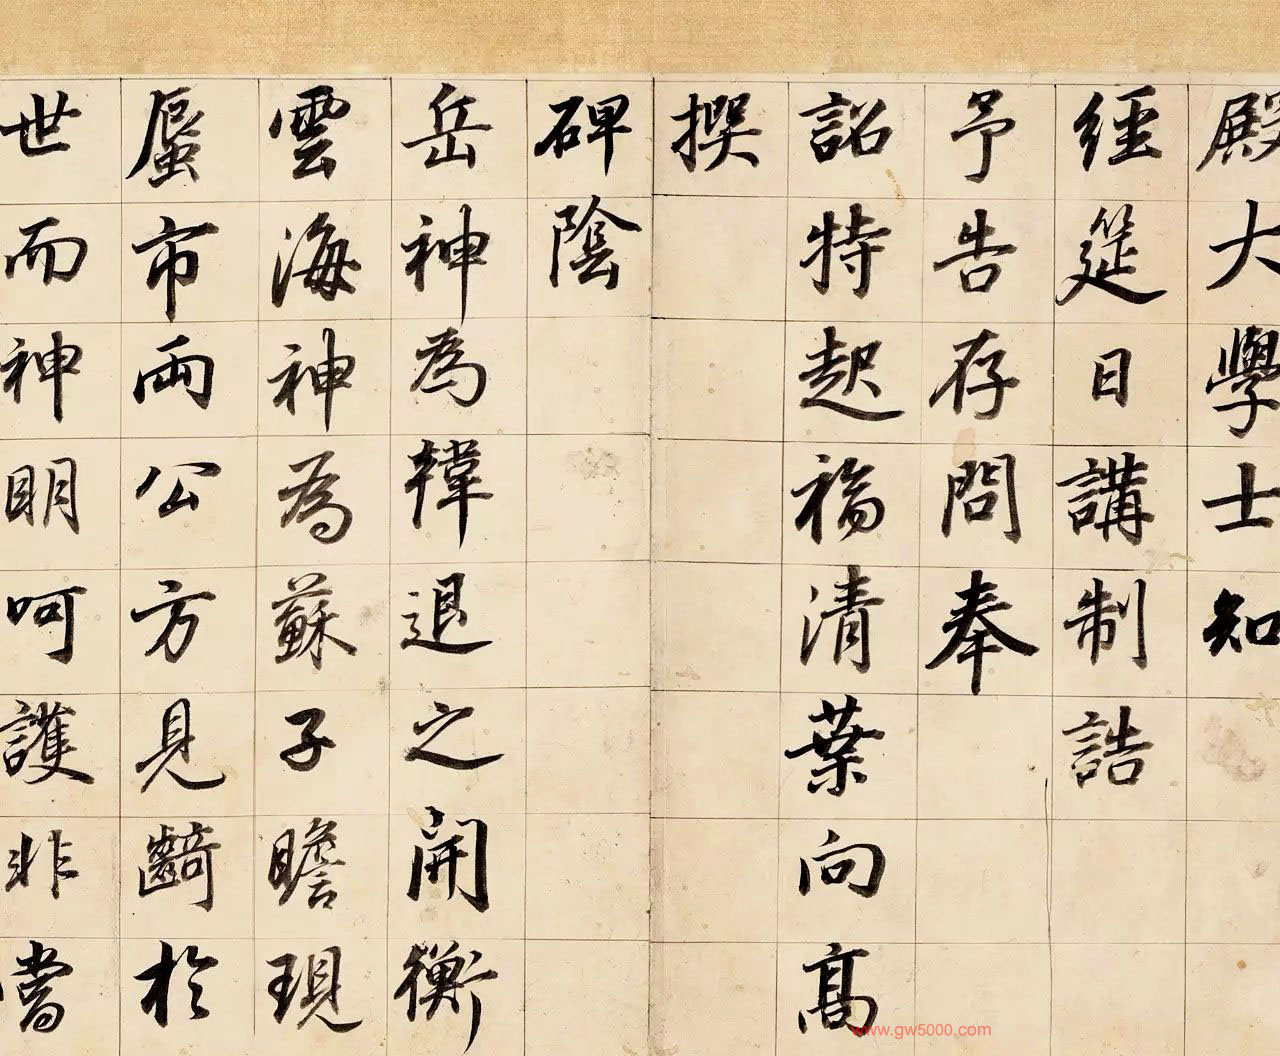 殿大學士知
經筵日講制誥
予告存問奉
詔特起福清葉向高
撰
碑陰
岳神為韓退之開衡
雲海神為蘇子瞻現
蜃市兩公方見齮於
世而神明呵護非嘗
www.gw5000.com